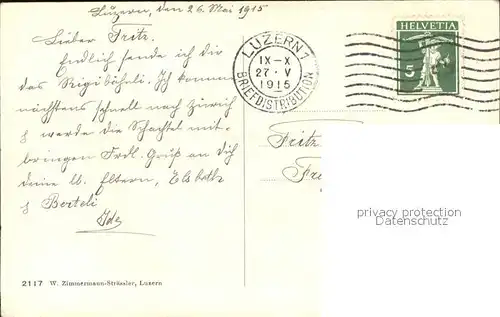 Luzern, den 26. Mai 1915
Lieber Fritz.
Endlich sende ich dir
das Rigibähnli. Ich komme
nächstens schnell nach Zürich
& werde die Schachtel mit-
bringen Frdl. Gruß an dich
deine lb. Eltern, Elsbeth
& Berteli
Ida
LUZERN 1
IX-X
27·V
1915
BRIEFDISTRIBUTION
HELVETIA
5
Fritz
privacy protection
watermark oldthing.de
2117 W. Zimmermann-Strässler, Luzern